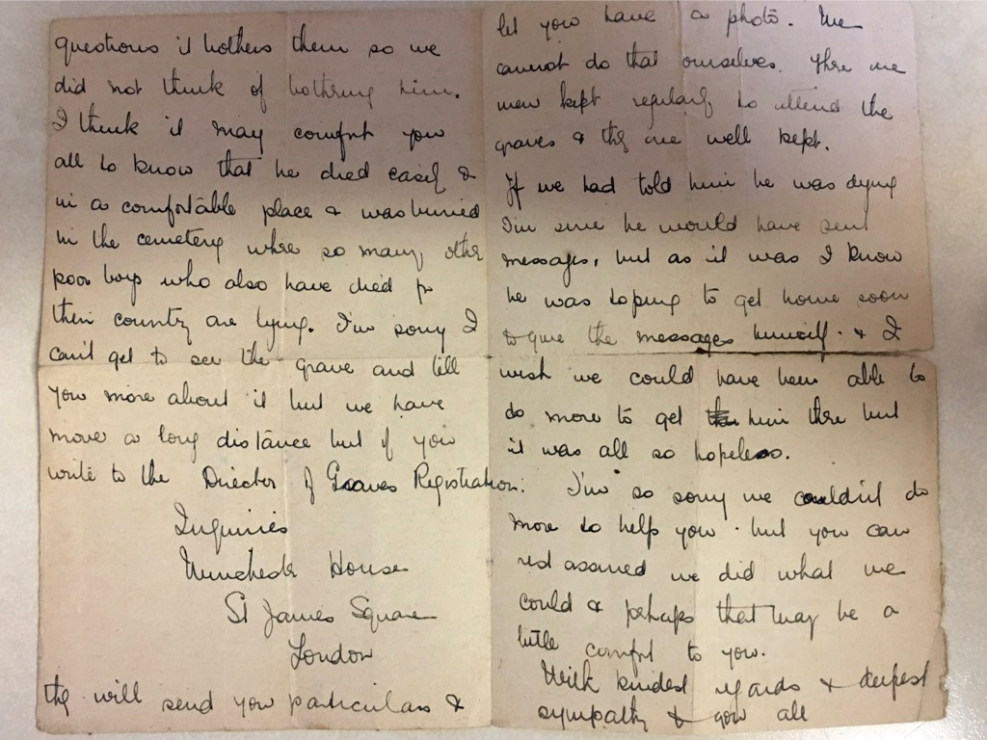 questions it bothers them so we
did not think of bothring him.
I think it may comfort you
all to know that he died easily &
in a comfortable place & was buried
in the cemetery where so many other
poor boys who also have died for
their country are lying. I'm sorry I
can't get to see the grave and tell
you more about it but we have
move a long distance but if you
write to the Director of Graves Registration.
Inquiries
House
St James Square
London
they will send you particulars &
let you have a photo. We
cannot do that ourselves. There are
men kept regularly to attend the
graves & they are well kept.
If we had told him he was dying
I'm sure he would have sent
messages, but as it was I know
he was hoping to get home soon
to give the messages himself. & I
wish we could have been able to
do more to get him there but
it was all so hopeless.
I'm so sorry we couldn't do
more to help you. but you can
rest assured we did what we
could & perhaps that may be a
little comfort to you.
With kindest regards & deepest
sympathy to you all